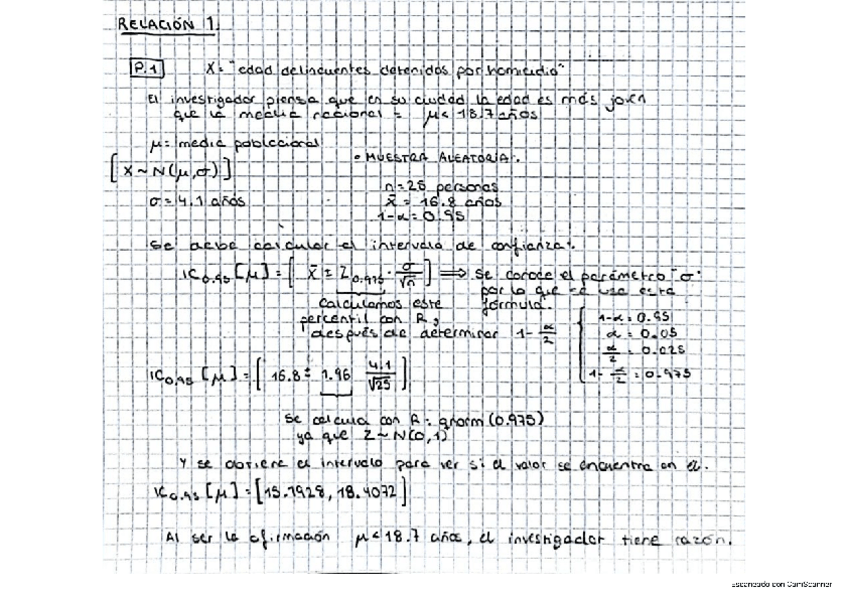 RELACIÓN 1.
P.1 X = "edad delincuentes detenidos por homicidio"
El investigador piensa que en su ciudad la edad es más joven
que la media nacional = μ < 18.7 años
μ = media poblacional
• MUESTRA ALEATORIA:
[X ~ N(μ,σ)]
n = 25 personas
σ = 4.1 años
x̄ = 16.8 años
1-α = 0.95
Se debe calcular el intervalo de confianza:
IC0.95 [μ] = [x̄ ± Z0.975 · σ/√n] ⟹ Se conoce el parámetro "σ"
por lo que se usa esta
fórmula.
Calculamos este
percentil con R,
después de determinar 1 - α/2
1-α = 0.95
α = 0.05
α/2 = 0.025
1 - α/2 = 0.975
IC0.95 [μ] = [16.8 ± 1.96 4.1/√25]
Se calcula con R: qnorm(0.975)
ya que Z ~ N(0,1)
Y se obtiene el intervalo para ver si el valor se encuentra en él.
IC0.95 [μ] = [15.1928, 18.4072]
Al ser la afirmación μ < 18.7 años, el investigador tiene razón.
Escaneado con CamScanner